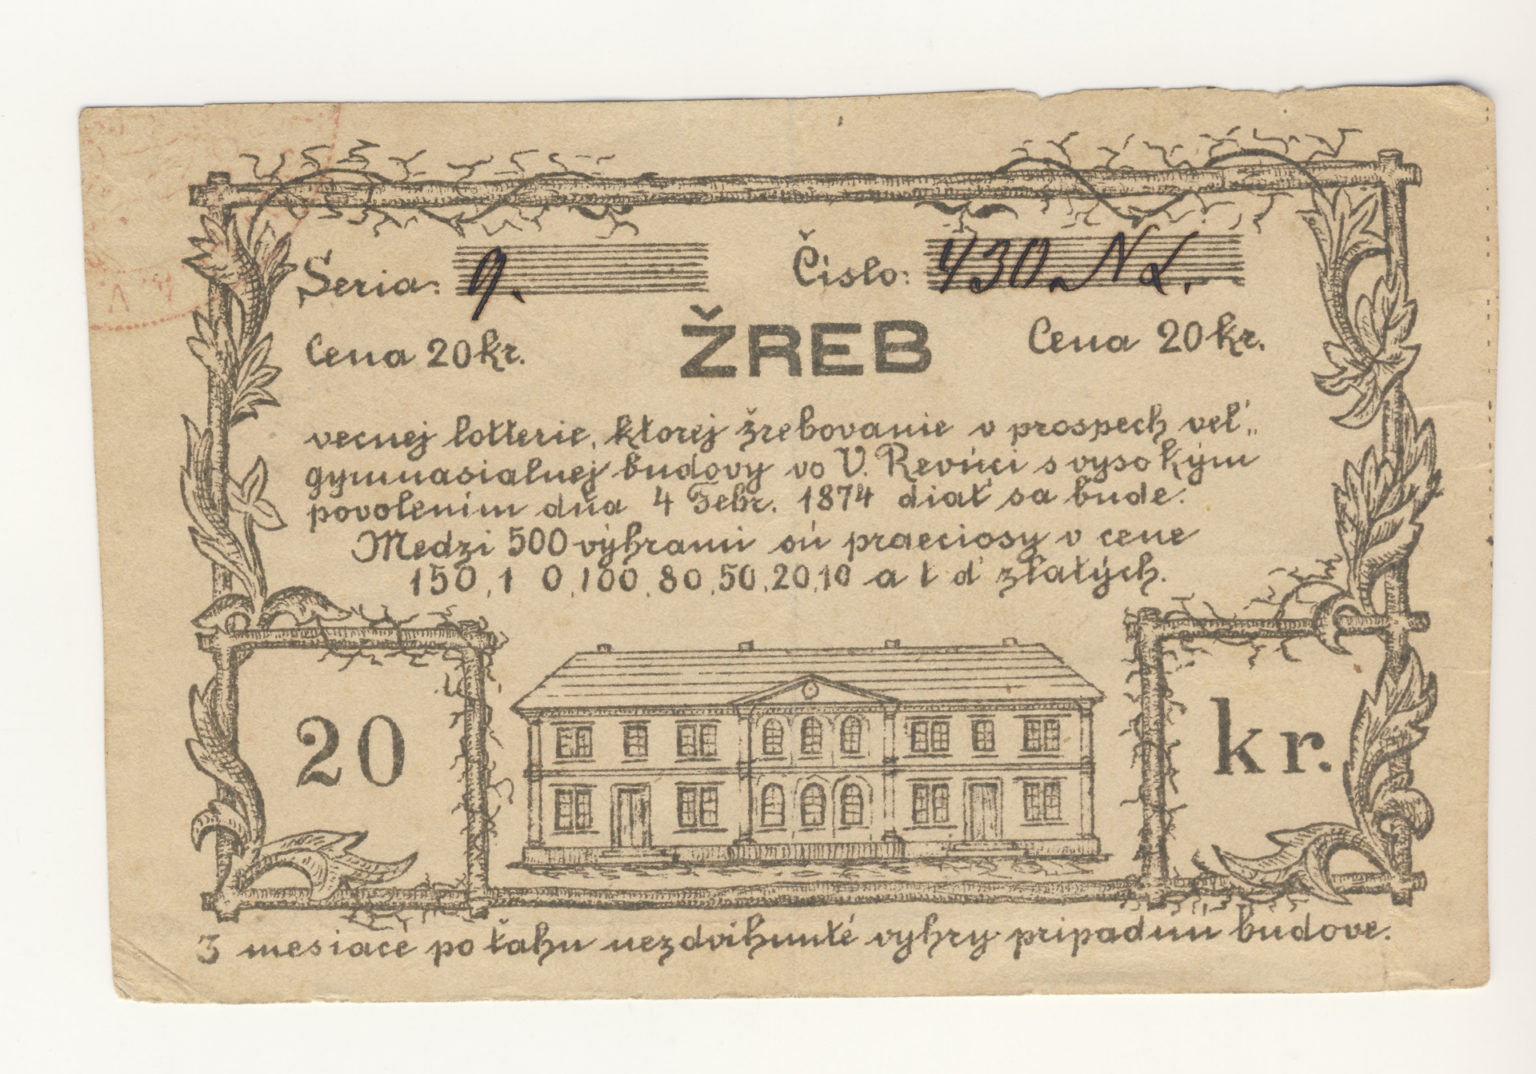 Seria: 9. Čislo: 430. N
Cena 20 kr. ŽREB Cena 20 kr.
vecnej lotterie, ktorej žrebovanie v prospech veľ.
gymnasialnej budovy vo V. Revúci s vysokým
povolením dňa 4 Febr. 1874 diať sa bude.
Medzi 500 výhrami sú praeciosy v cene
150, 1 0, 100, 80, 50, 20, 10 a t ď zlatých.
20 kr.
3 mesiace po ťahu nezdvihnuté vyhry pripadnú budove.